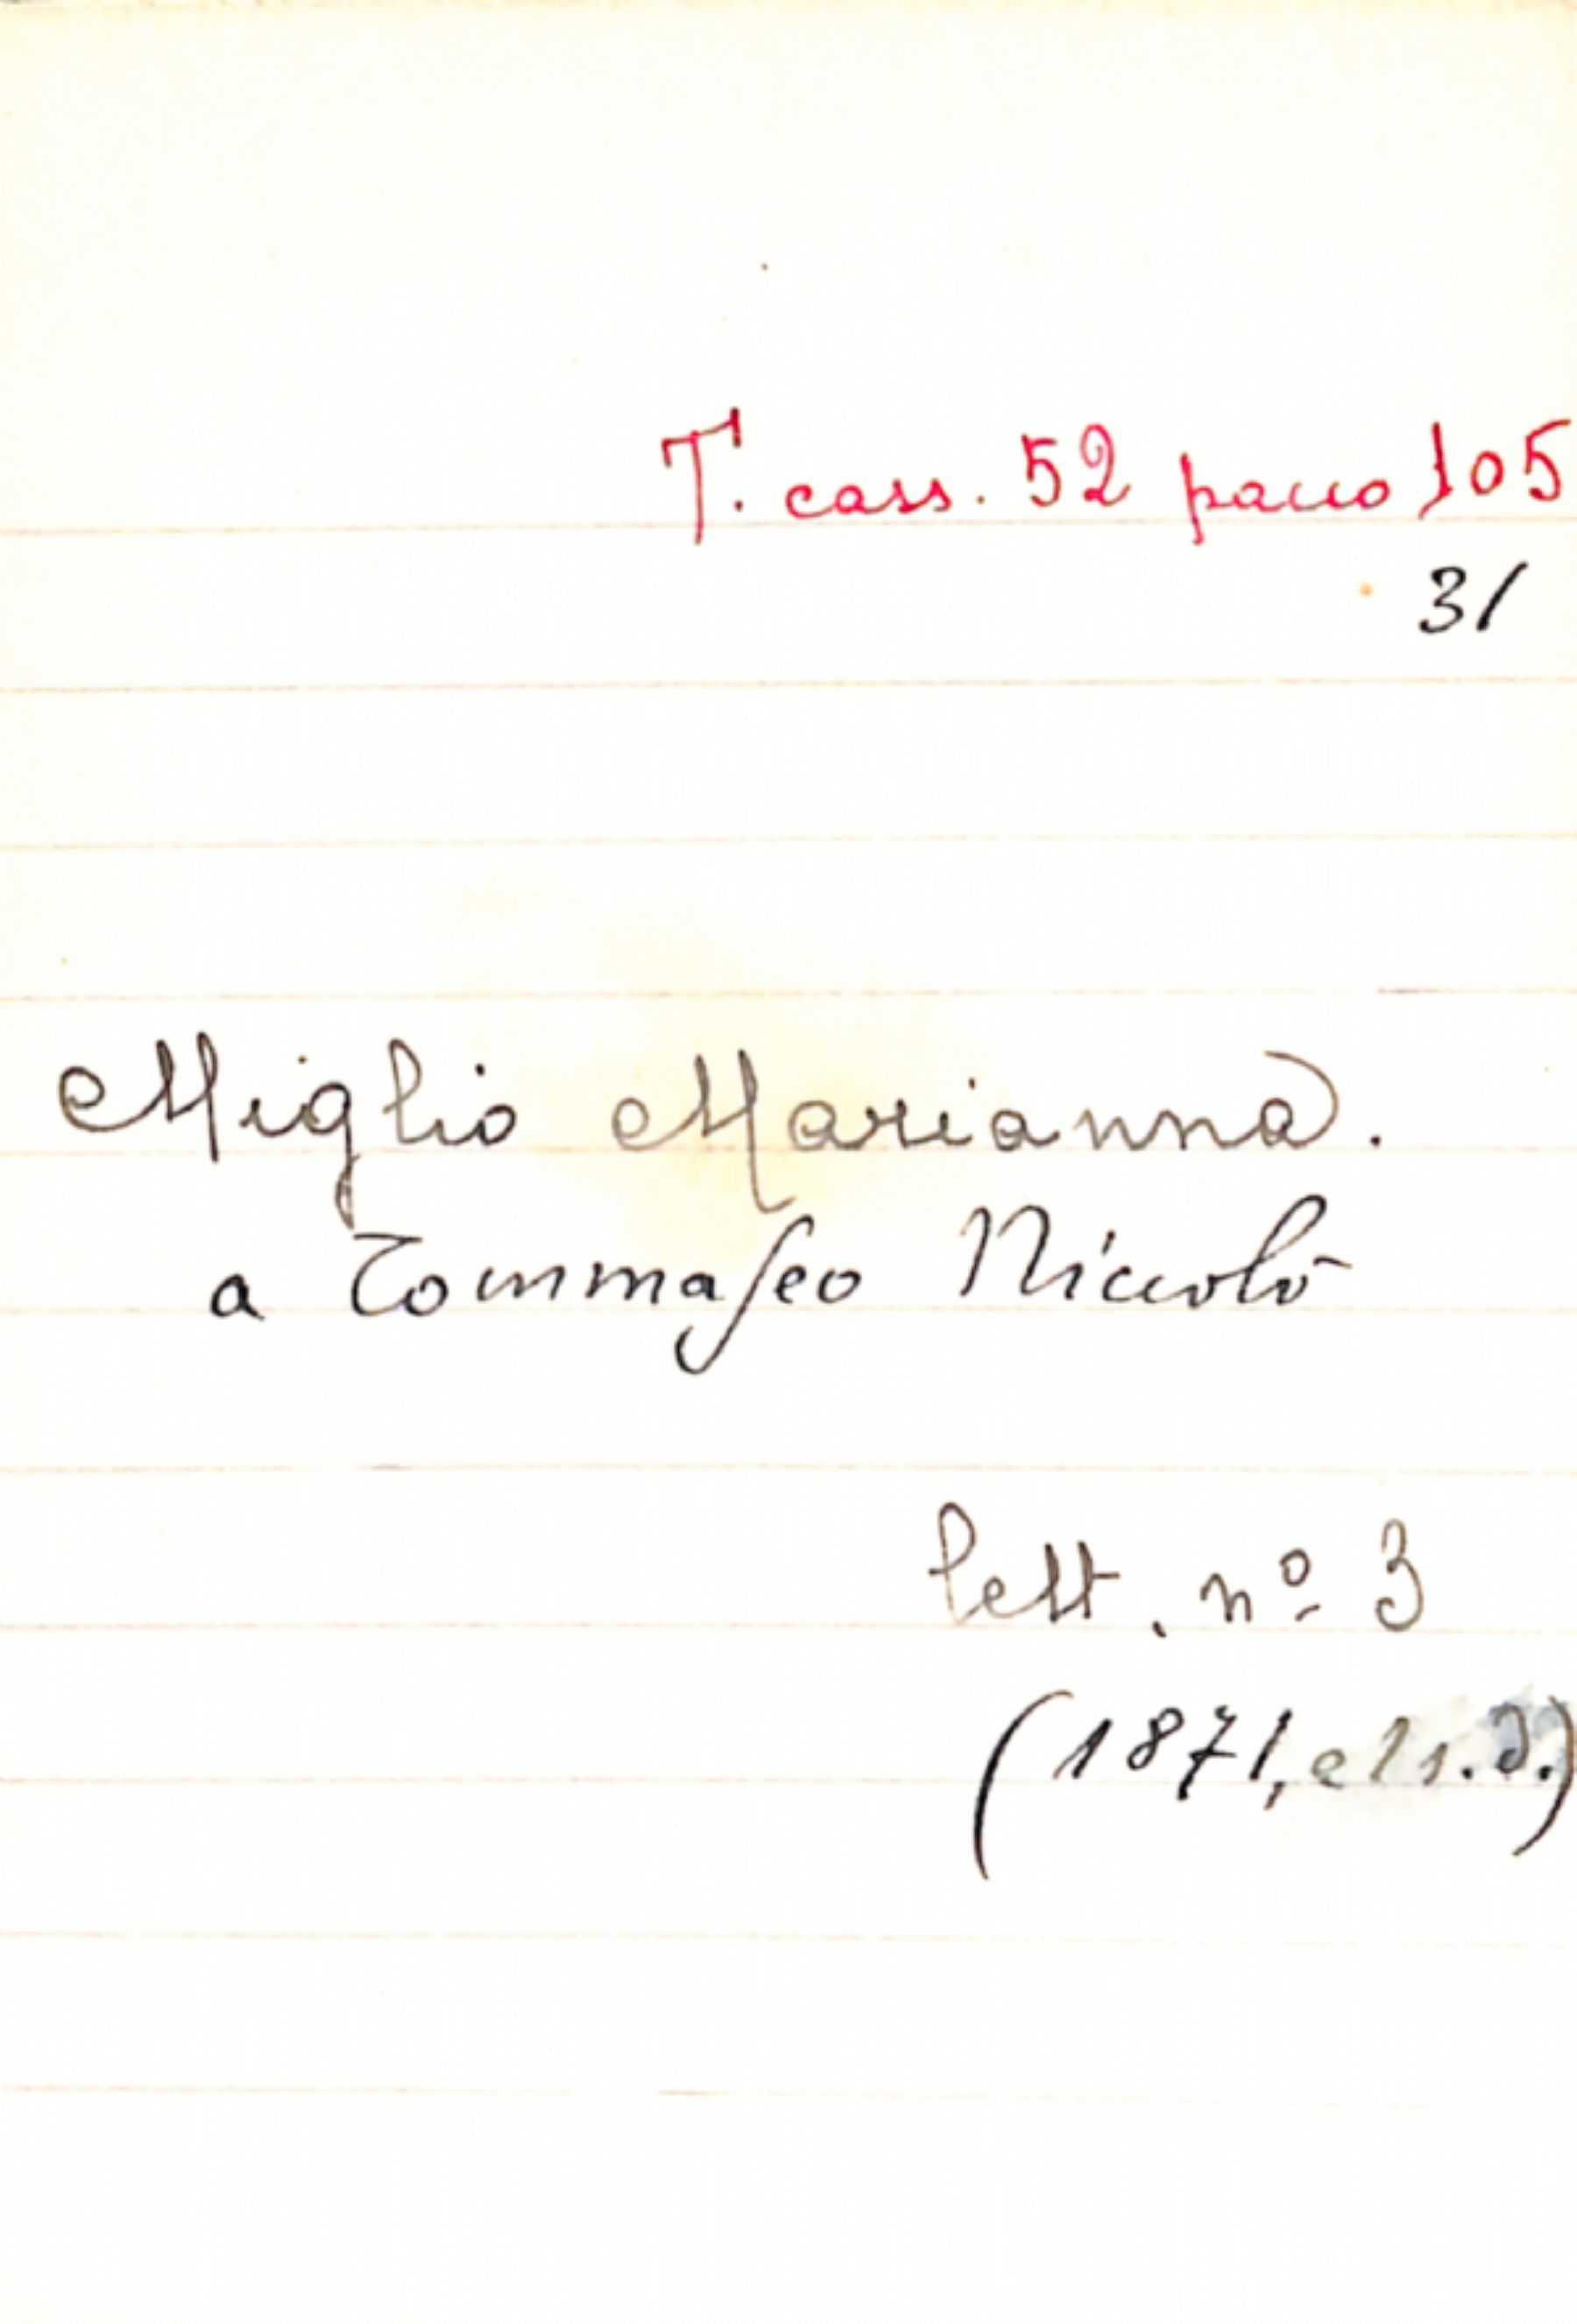 T. cass. 52 pacco 105
31
Miglio Marianna.
a Tommaseo Niccolò
lett. nº 3
(1871, e 1 s. d.)